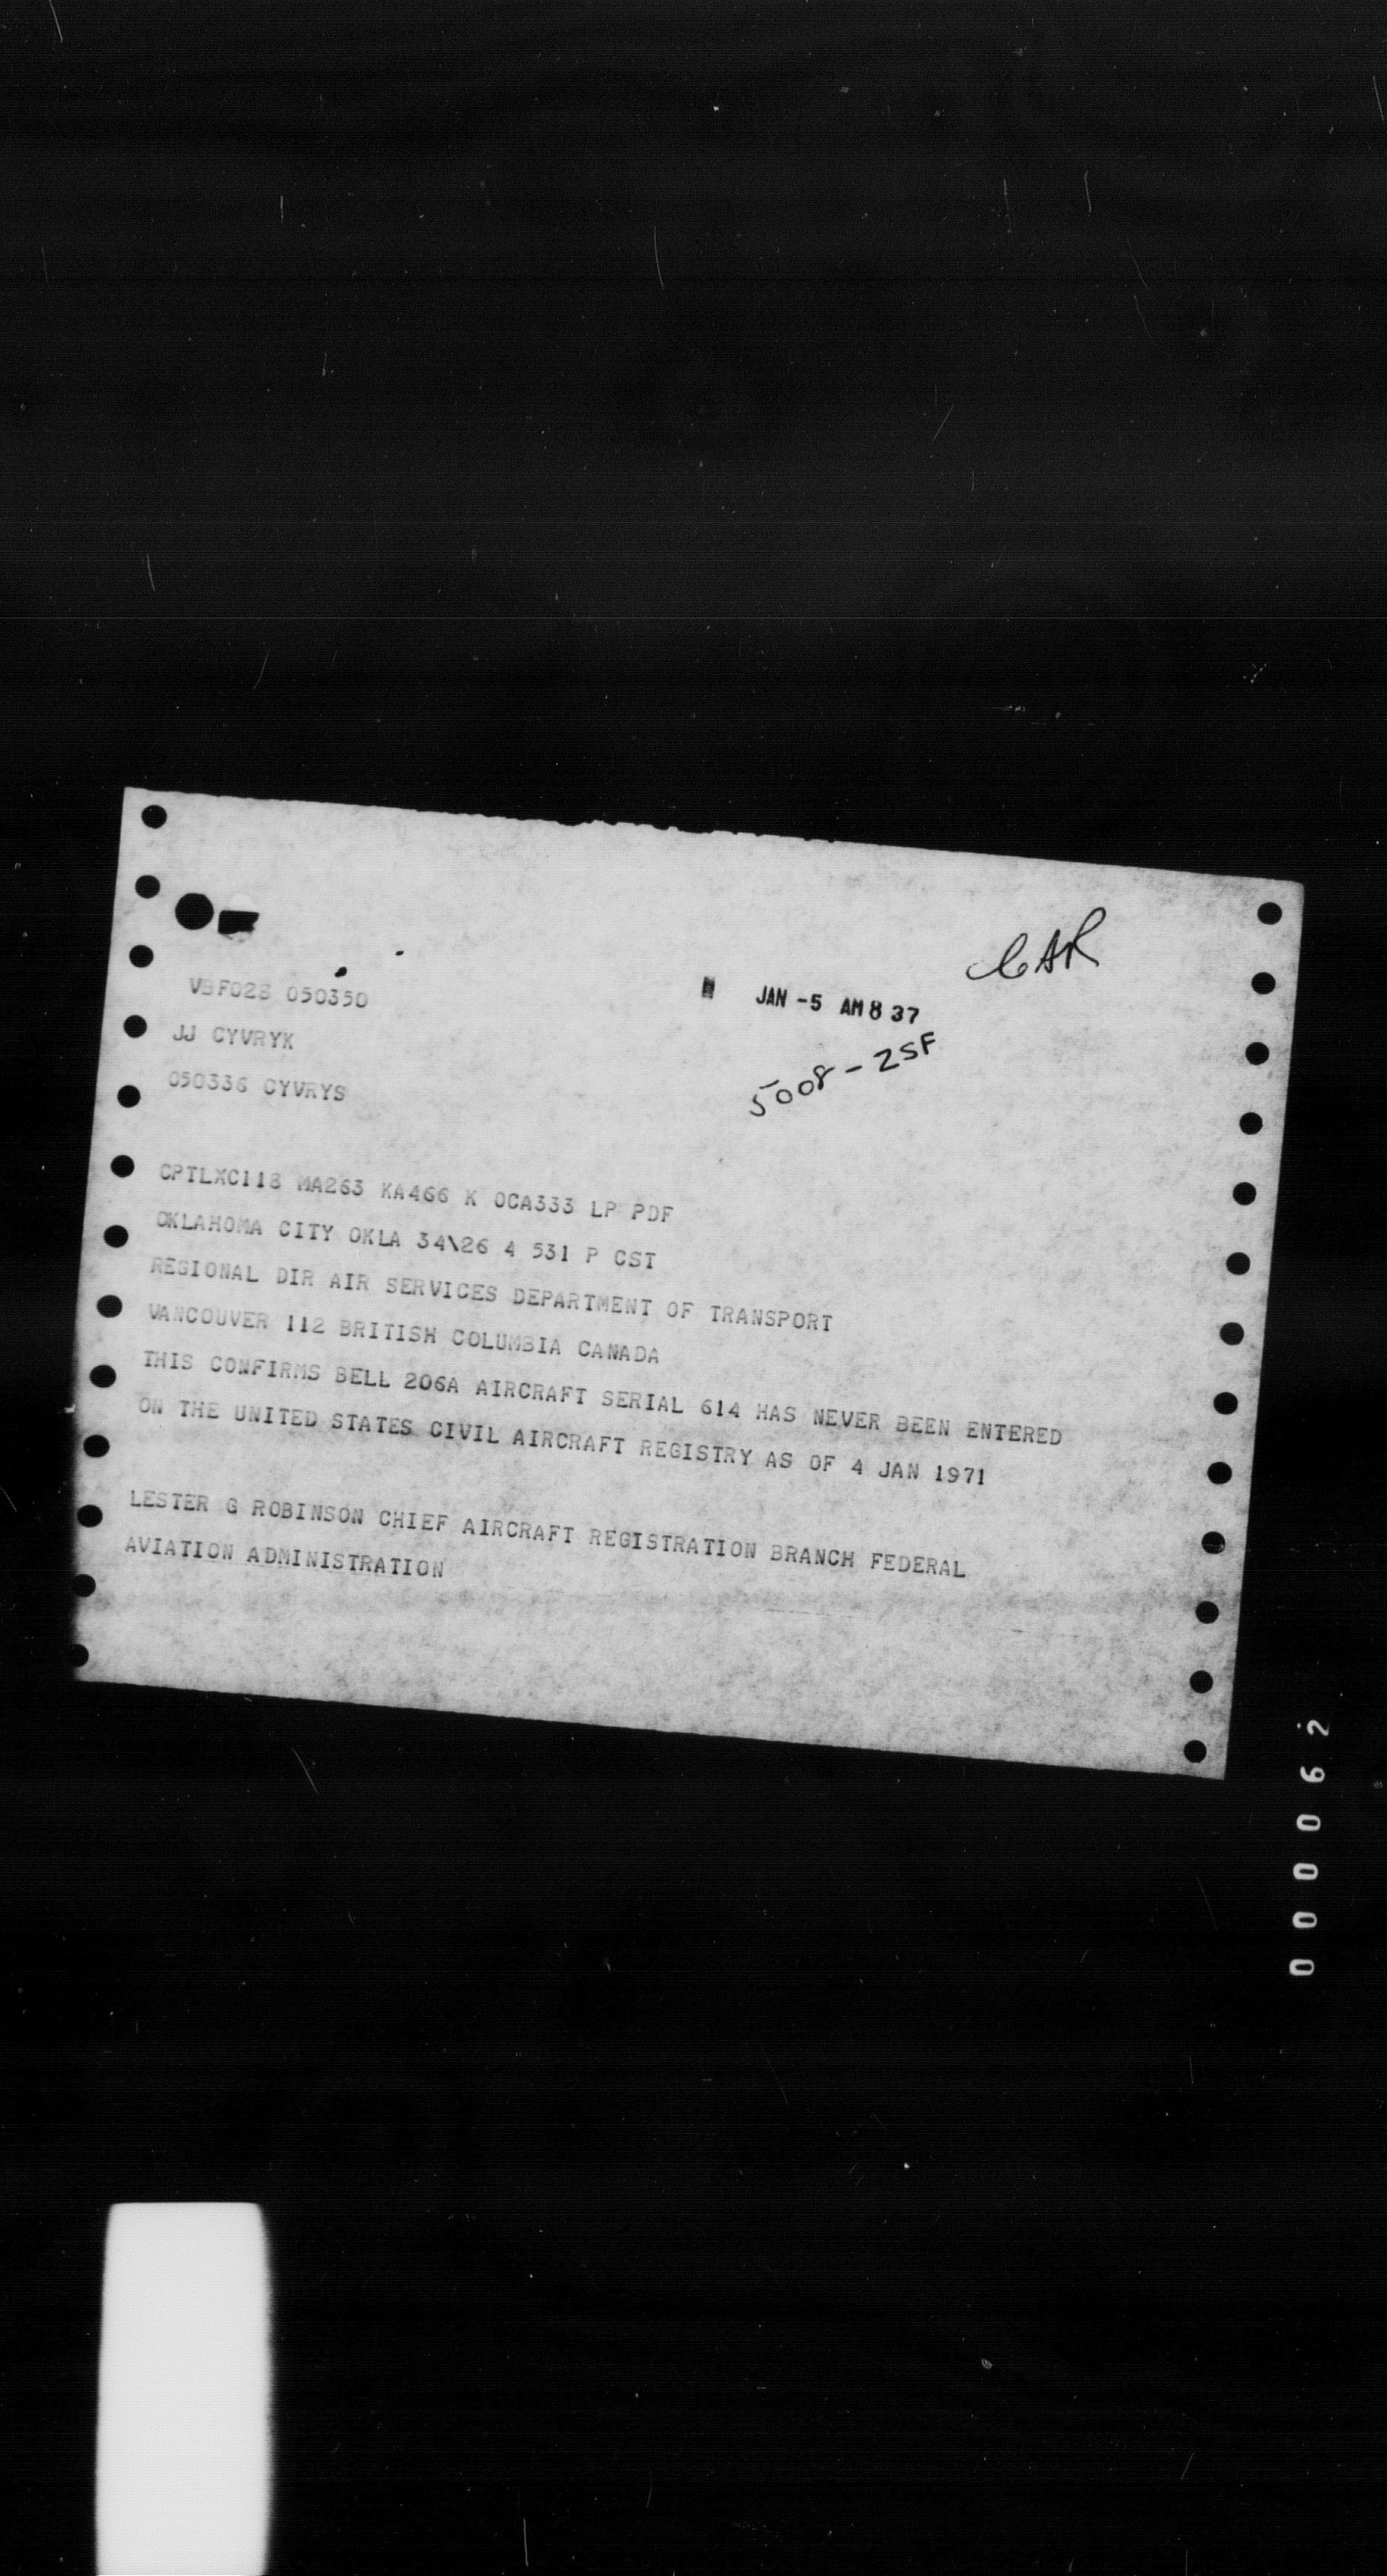 CAR
JAN -5 AM 8 37
5008-ZSF
VBF028 050350
JJ CYVRYK
050336 CYVRYS
CPTLXC118 MA263 KA466 K OCA333 LP PDF
OKLAHOMA CITY OKLA 34\26 4 531 P CST
REGIONAL DIR AIR SERVICES DEPARTMENT OF TRANSPORT
VANCOUVER 112 BRITISH COLUMBIA CANADA
THIS CONFIRMS BELL 206A AIRCRAFT SERIAL 614 HAS NEVER BEEN ENTERED
ON THE UNITED STATES CIVIL AIRCRAFT REGISTRY AS OF 4 JAN 1971
LESTER G ROBINSON CHIEF AIRCRAFT REGISTRATION BRANCH FEDERAL
AVIATION ADMINISTRATION
000062